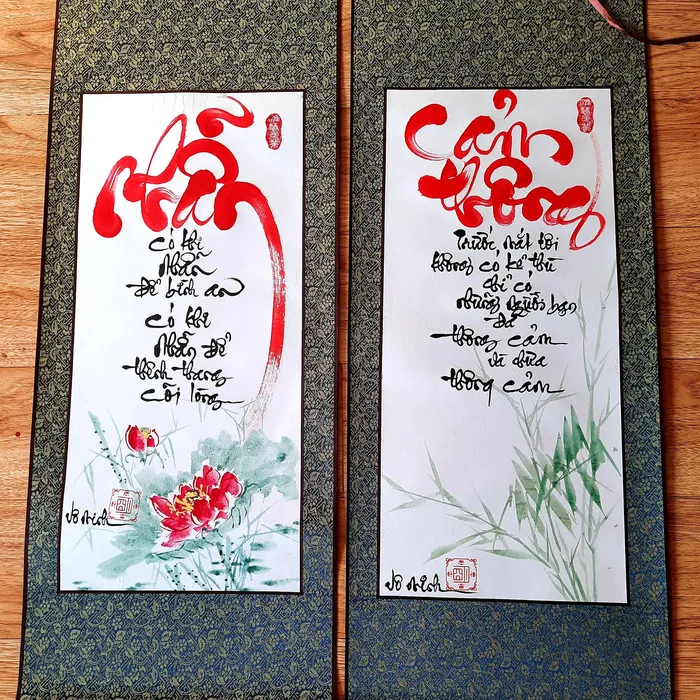 Nhẫn
Có khi
Nhẫn
Để bình an
Có khi
Nhẫn để
thênh thang
cõi lòng
Vô Minh
Cảm
thông
Trước mắt tôi
không có kẻ thù
chỉ có
những người bạn
đã
thông cảm
và chưa
thông cảm
Vô Minh